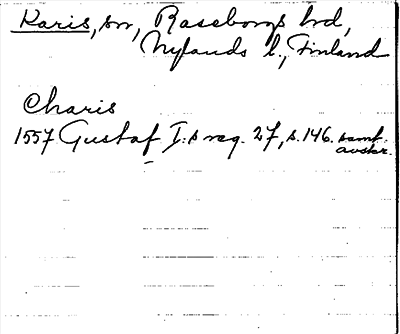 Karis, sn, Raseborgs hd,
Nylands l., Finland
Charis
1557 Gustaf I:s reg. 27, s. 146. samt.
avskr.